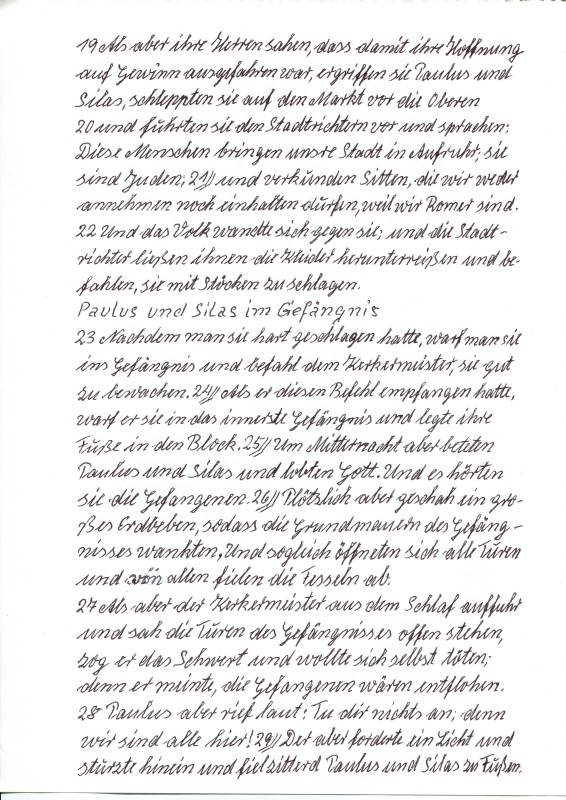 19 Als aber ihre Herren sahen, dass damit ihre Hoffnung
auf Gewinn ausgefahren war, ergriffen sie Paulus und
Silas, schleppten sie auf den Markt vor die Oberen
20 und führten sie den Stadtrichtern vor und sprachen:
Diese Menschen bringen unsre Stadt in Aufruhr; sie
sind Juden; 21// und verkünden Sitten, die wir weder
annehmen noch einhalten dürfen, weil wir Römer sind.
22 Und das Volk wandte sich gegen sie; und die Stadt-
richter ließen ihnen die Kleider herunterreißen und be-
fahlen, sie mit Stöcken zu schlagen.
Paulus und Silas im Gefängnis
23 Nachdem man sie hart geschlagen hatte, warf man sie
ins Gefängnis und befahl dem Kerkermeister, sie gut
zu bewachen. 24// Als er diesen Befehl empfangen hatte,
warf er sie in das innerste Gefängnis und legte ihre
Füße in den Block. 25// Um Mitternacht aber beteten
Paulus und Silas und lobten Gott. Und es hörten
sie die Gefangenen. 26// Plötzlich aber geschah ein gro-
ßes Erdbeben, sodass die Grundmauern des Gefäng-
nisses wankten, Und sogleich öffneten sich alle Türen
und von allen fielen die Fesseln ab.
27 Als aber der Kerkermeister aus dem Schlaf auffuhr
und sah die Türen des Gefängnisses offen stehen,
zog er das Schwert und wollte sich selbst töten;
denn er meinte, die Gefangenen wären entflohen.
28 Paulus aber rief laut: Tu dir nichts an; denn
wir sind alle hier! 29// Der aber forderte ein Licht und
stürzte hinein und fiel zitterd Paulus und Silas zu Füßen.